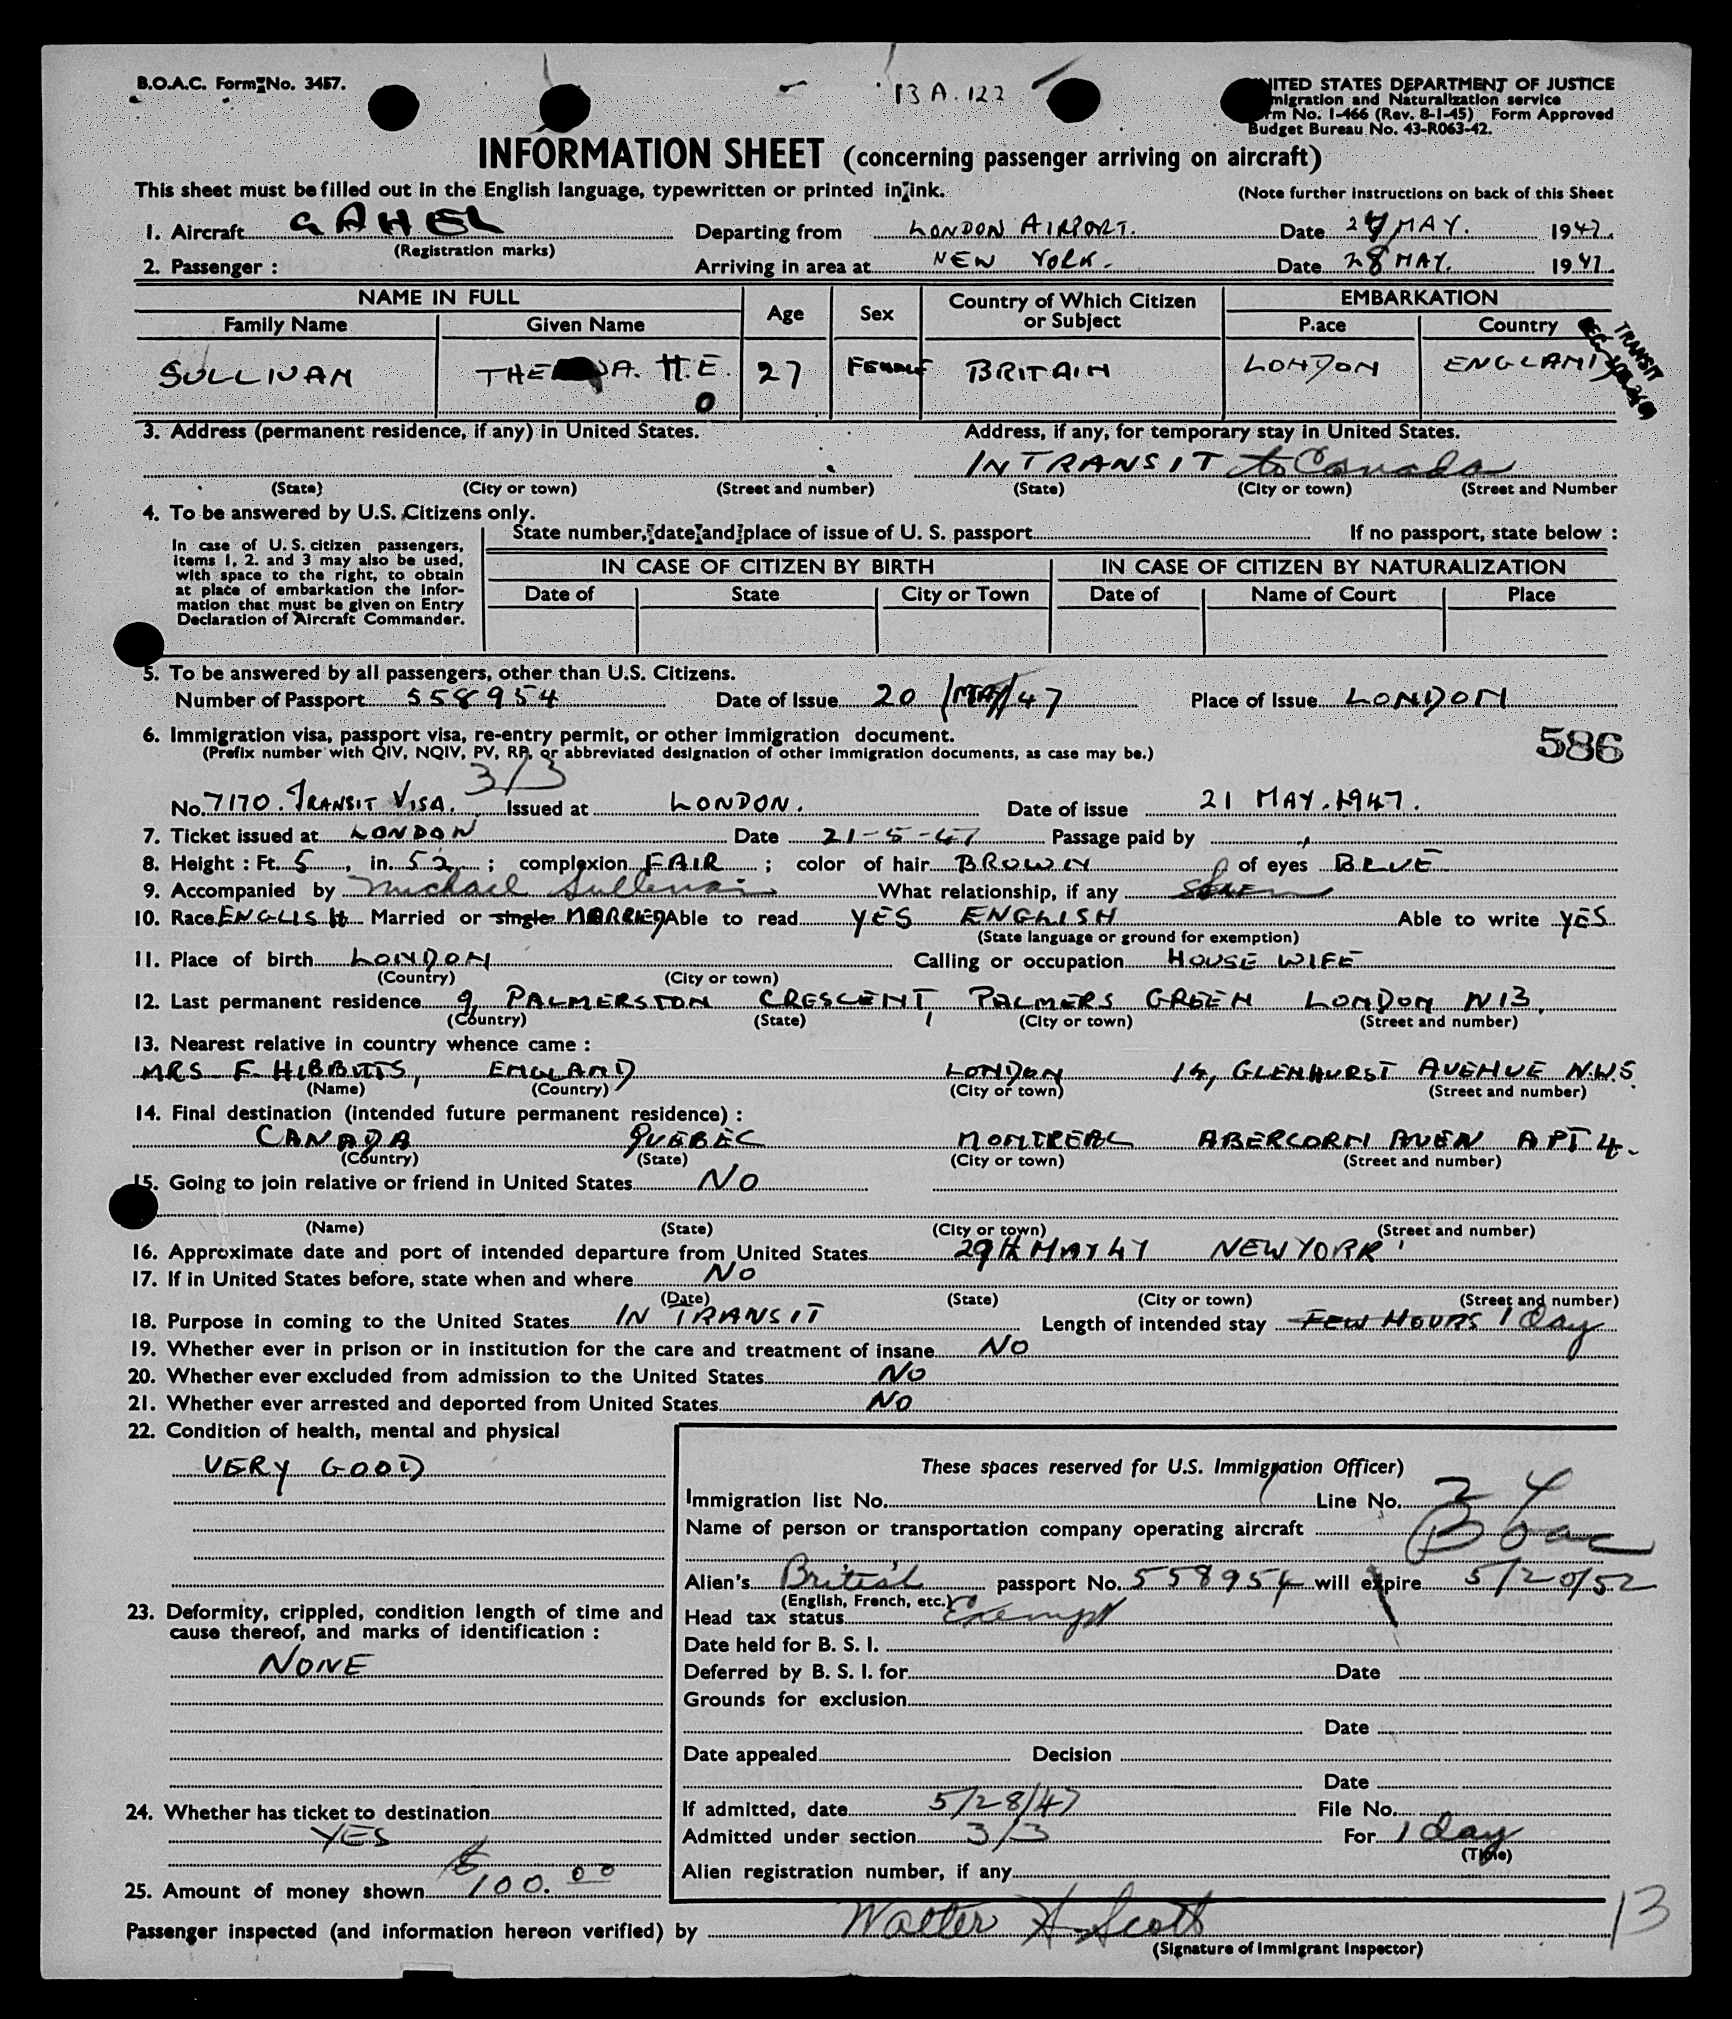 B.O.A.C. Form No. 3457.
13 A. 122
UNITED STATES DEPARTMENT OF JUSTICE
Immigration and Naturalization service
Form No. I-466 (Rev. 8-1-45) Form Approved
Budget Bureau No. 43-R063-42.
INFORMATION SHEET (concerning passenger arriving on aircraft)
This sheet must be filled out in the English language, typewritten or printed in ink. (Note further instructions on back of this Sheet
1. Aircraft GAHEL Departing from LONDON AIRPORT. Date 27 MAY. 1947.
(Registration marks)
2. Passenger : Arriving in area at NEW YORK. Date 28 MAY. 1947.
NAME IN FULL Age Sex Country of Which Citizen or Subject EMBARKATION
Family Name Given Name Place Country
SULLIVAN H.E. 27 FEMALE BRITAIN LONDON ENGLAND
TRANSIT
0
3. Address (permanent residence, if any) in United States. Address, if any, for temporary stay in United States.
IN TRANSIT to Canada
(State) (City or town) (Street and number) (State) (City or town) (Street and Number
4. To be answered by U.S. Citizens only.
State number, date and place of issue of U. S. passport If no passport, state below :
In case of U.S. citizen passengers, items 1, 2. and 3 may also be used, with space to the right, to obtain at place of embarkation the information that must be given on Entry Declaration of Aircraft Commander.
IN CASE OF CITIZEN BY BIRTH IN CASE OF CITIZEN BY NATURALIZATION
Date of State City or Town Date of Name of Court Place
5. To be answered by all passengers, other than U.S. Citizens.
Number of Passport 558954 Date of Issue 20 /MAY/47 Place of Issue LONDON
6. Immigration visa, passport visa, re-entry permit, or other immigration document.
(Prefix number with QIV, NQIV, PV, RP, or abbreviated designation of other immigration documents, as case may be.)
586
3/3
No. 7170. TRANSIT VISA. Issued at LONDON. Date of issue 21 MAY. 1947.
7. Ticket issued at LONDON Date 21-5-47 Passage paid by
8. Height : Ft. 5, in. 5 2 ; complexion FAIR ; color of hair BROWN of eyes BLUE
9. Accompanied by Michael Sullivan What relationship, if any
10. Race ENGLISH Married or single MARRIED Able to read YES ENGLISH Able to write YES
(State language or ground for exemption)
11. Place of birth LONDON Calling or occupation HOUSE WIFE
(Country) (City or town)
12. Last permanent residence 9, PALMERSTON CRESCENT, PALMERS GREEN LONDON N13.
(Country) (State) (City or town) (Street and number)
13. Nearest relative in country whence came :
MRS F. HIBBITTS, ENGLAND LONDON 14, GLENHURST AVENUE N.W.5.
(Name) (Country) (City or town) (Street and number)
14. Final destination (intended future permanent residence) :
CANADA QUEBEC MONTREAL ABERCORN AVEN APT 4.
(Country) (State) (City or town) (Street and number)
15. Going to join relative or friend in United States NO
(Name) (State) (City or town) (Street and number)
16. Approximate date and port of intended departure from United States 29th MAY 47 NEW YORK
17. If in United States before, state when and where NO
(Date) (State) (City or town) (Street and number)
18. Purpose in coming to the United States IN TRANSIT Length of intended stay FEW HOURS 1 day
19. Whether ever in prison or in institution for the care and treatment of insane NO
20. Whether ever excluded from admission to the United States NO
21. Whether ever arrested and deported from United States NO
22. Condition of health, mental and physical
VERY GOOD
These spaces reserved for U.S. Immigration Officer)
Immigration list No. Line No.
Name of person or transportation company operating aircraft Boac
Alien's British passport No. 558954 will expire 5/20/52
(English, French, etc.)
23. Deformity, crippled, condition length of time and cause thereof, and marks of identification :
NONE
Head tax status Exempt
Date held for B. S. I.
Deferred by B. S. I. for Date
Grounds for exclusion
Date
Date appealed Decision
Date
24. Whether has ticket to destination
YES
If admitted, date 5/28/47 File No.
Admitted under section 3/3 For 1 day
(Time)
Alien registration number, if any
25. Amount of money shown $100.00
13
Passenger inspected (and information hereon verified) by Walter A Scott
(Signature of Immigrant Inspector)